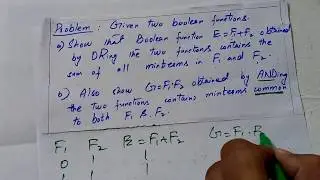 Problem : Given two boolean functions.
a) Show that Boolean function E = F1+F2 obtained
by ORing the two functions contains the
sum of all minterms in F1 and F2.
b) Also show G=F1·F2 obtained by ANDing
the two functions contains minterms common
to both F1 & F2.
F1 F2 E = F1+F2 G = F1 · F
0 1 1
1 1 1